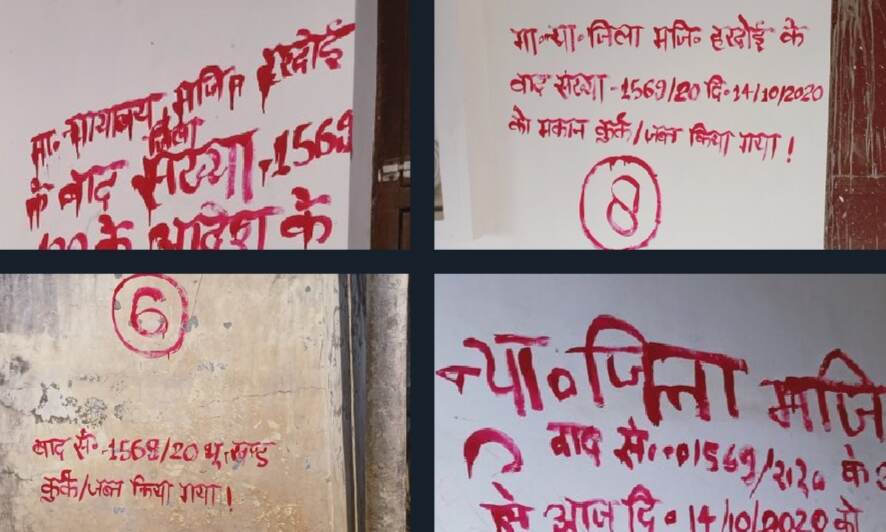 मा० न्यायालय मजि० हरदोई
जिला
के वाद संख्या -1569
के आदेश के
मा०न्या० जिला मजि० हरदोई के
वाद संख्या -1569/20 दि०14/10/2020
को मकान कुर्क/जब्त किया गया !
8
6
वाद सं० -1569/20 भू-खण्ड
कुर्क/जब्त किया गया !
न्या० जिला मजि
वाद सं० 01569/2020 के
से आज दि० 14/10/2020 को